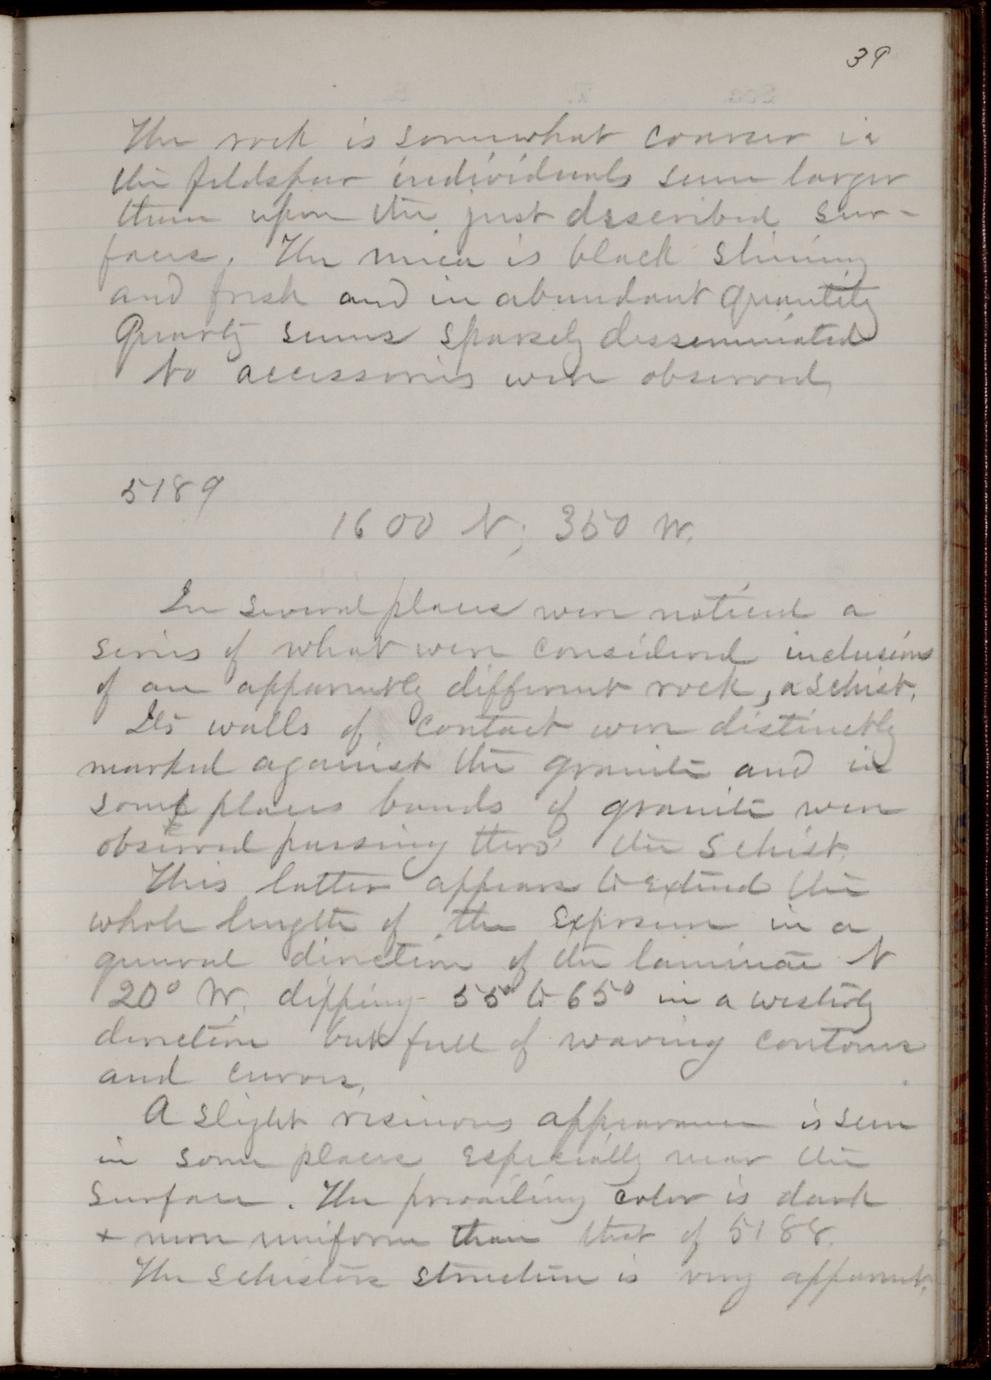 39
The rock is somewhat coarser in
the feldspar individuals seem larger
than upon the just described sur-
faces. The mica is black shining
and fresh and in abundant quantity
Quartz seems sparsely disseminated
No accessories were observed.
5189
1600 N; 350 W.
In several places were noticed a
series of what were considered inclusions
of an apparently different rock, a schist.
Its walls of contact were distinctly
marked against the granite and in
some places bands of granite were
observed passing thro' the Schist.
This latter appears to extend the
whole length of the exposure in a
general direction of the laminae N
20° W. dipping 55° to 65° in a westerly
direction but full of waving contours
and curves.
A slight resinous appearance is seen
in some places especially near the
surface. The prevailing color is dark
+ more uniform than that of 5188.
The schistose structure is very apparent.